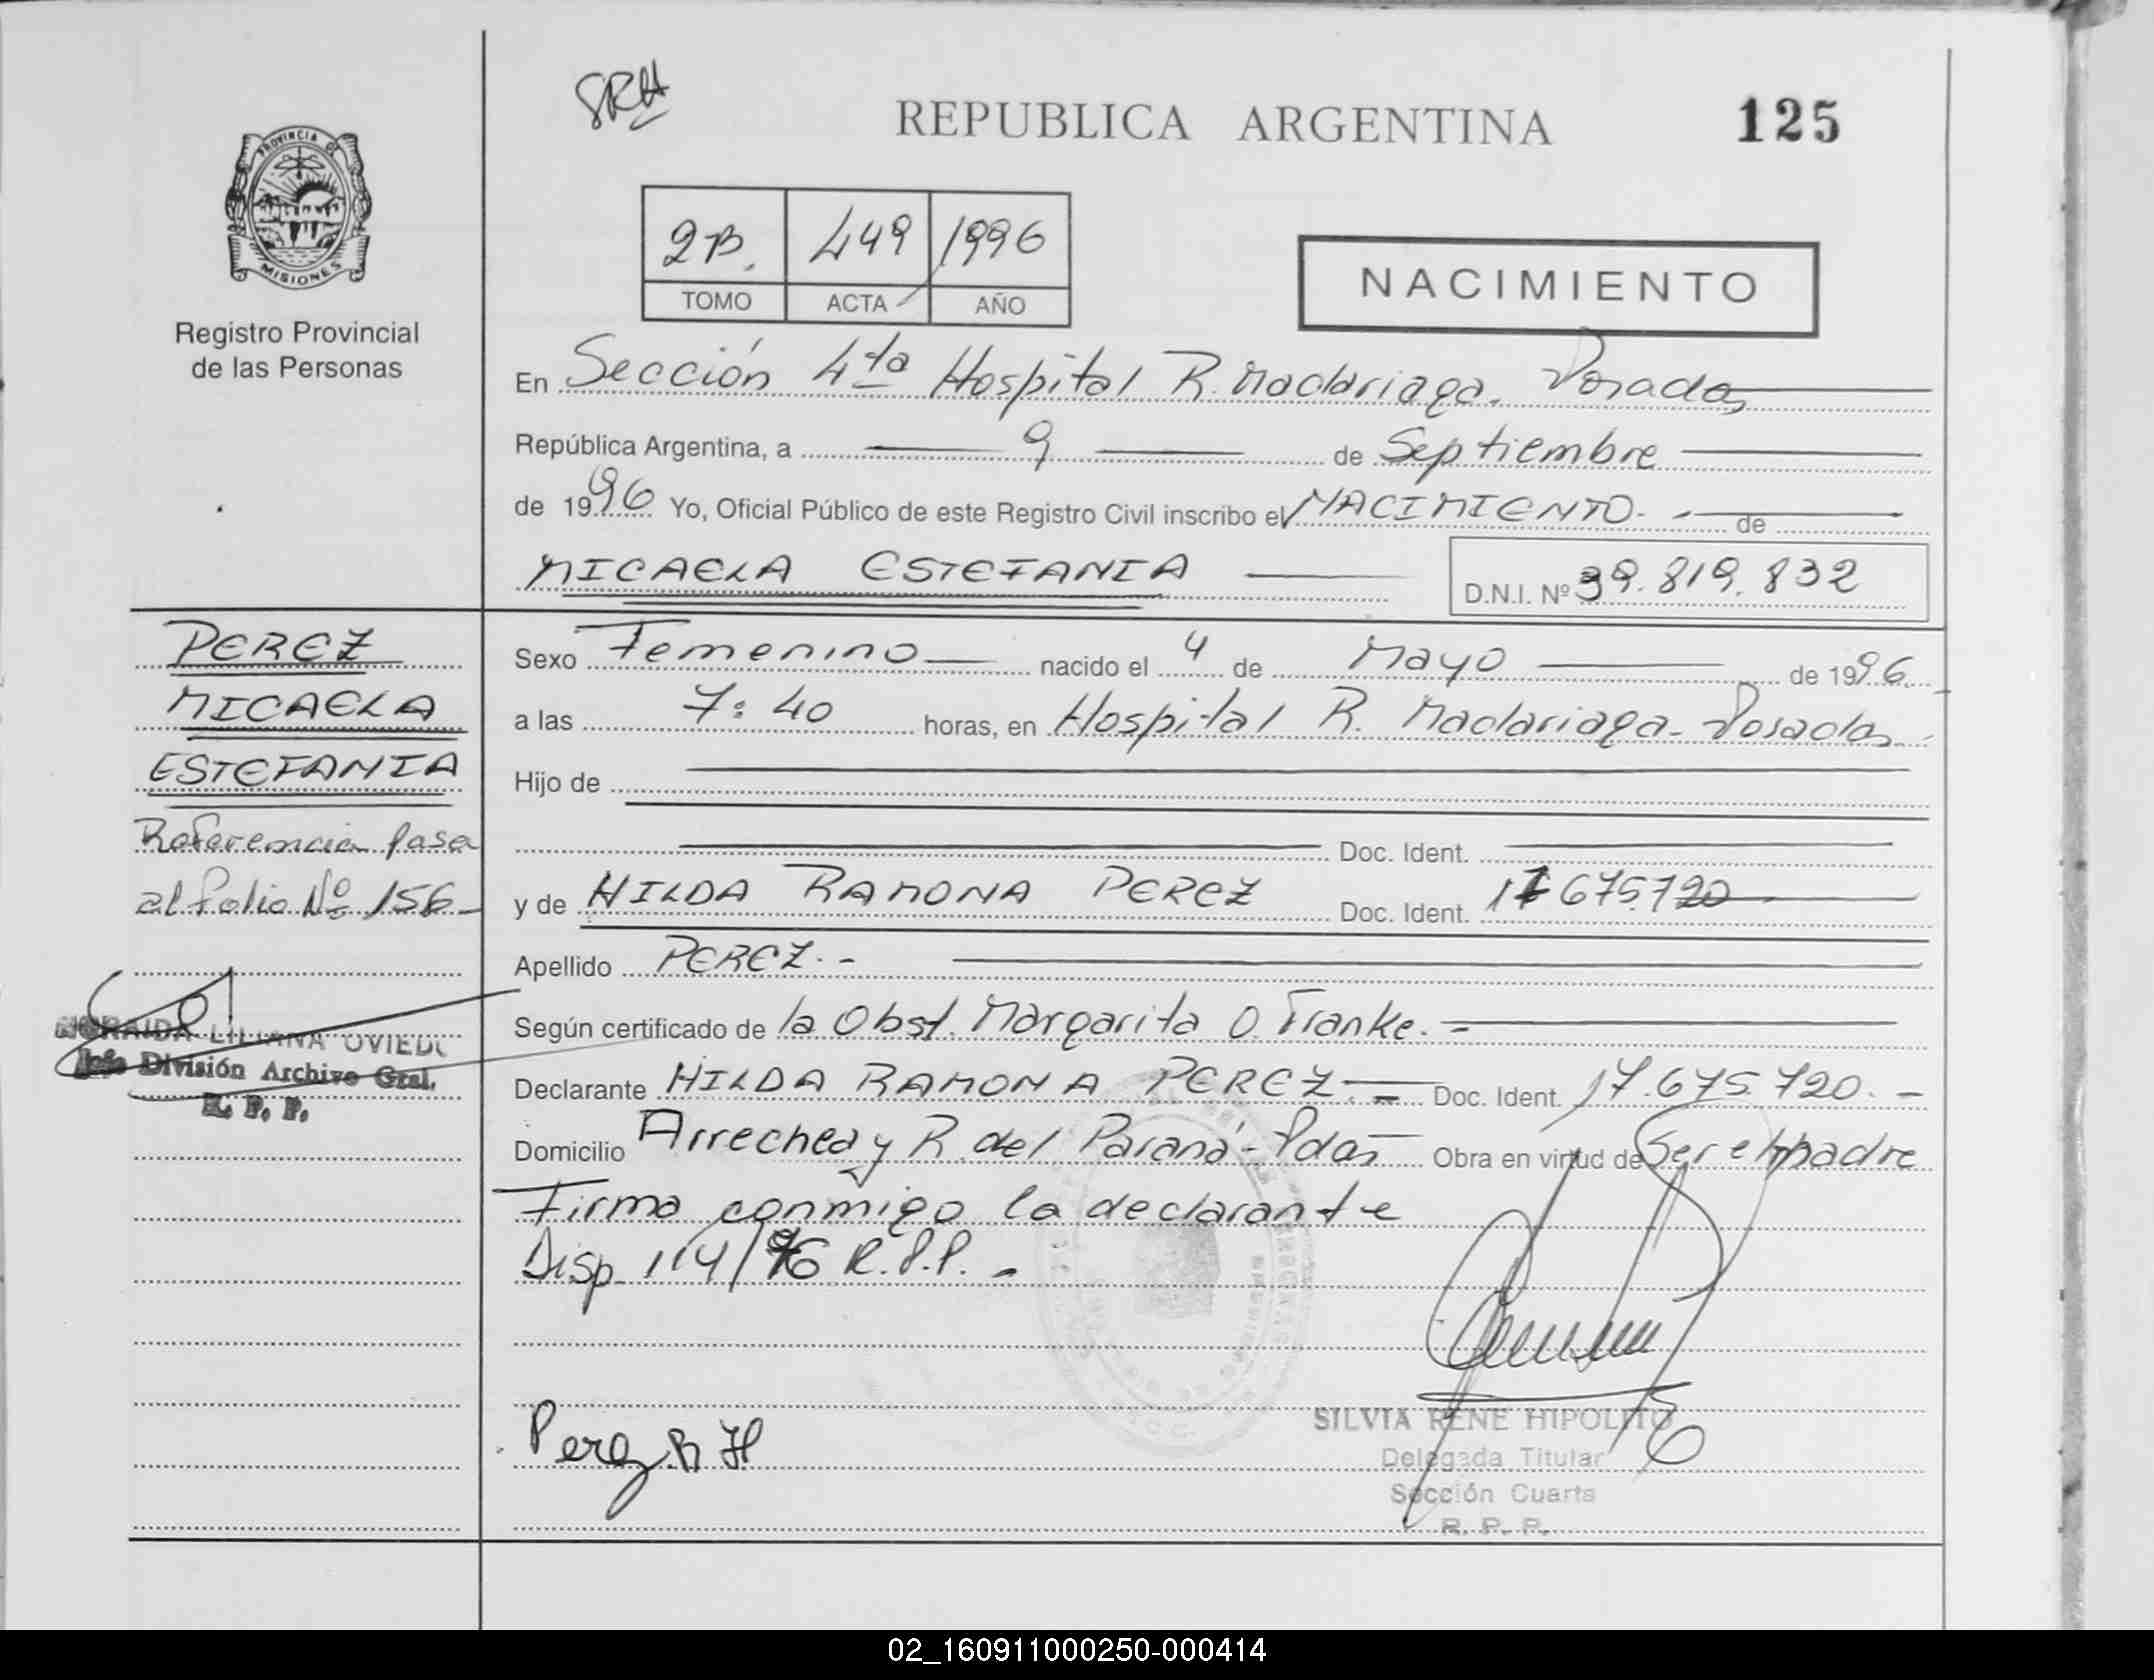 SRH
REPUBLICA ARGENTINA
125
PROVINCIA DE
MISIONES
Registro Provincial
de las Personas
2B. 449 1996
TOMO ACTA AÑO
NACIMIENTO
En Sección 4ta Hospital R. Madariaga. Posadas
República Argentina, a 9 de Septiembre
de 1996 Yo, Oficial Público de este Registro Civil inscribo el NACIMIENTO.- de
MICAELA ESTEFANIA D.N.I. Nº 39.819.832
PEREZ
MICAELA
ESTEFANIA
Referencia pasa
al folio Nº 156-
LILIANA OVIEDO
Jefe División Archivo Gral.
R. P. P.
Sexo Femenino nacido el 4 de Mayo de 1996.
a las 7:40 horas, en Hospital R. Madariaga- Posadas
Hijo de
Doc. Ident.
y de HILDA RAMONA PEREZ Doc. Ident. 17675720
Apellido PEREZ.-
Según certificado de la Obst. Margarita O. Franke.-
Declarante HILDA RAMONA PEREZ.= Doc. Ident. 17.675.720.-
Domicilio Arrechea y R. del Paraná- Pdas Obra en virtud de Ser el madre
Firma conmigo la declarante
Disp. 114/96 R.P.P.-
Perez R H
SILVIA RENE HIPOLITO
Delegada Titular
Sección Cuarta
R. P. P.
02_160911000250-000414